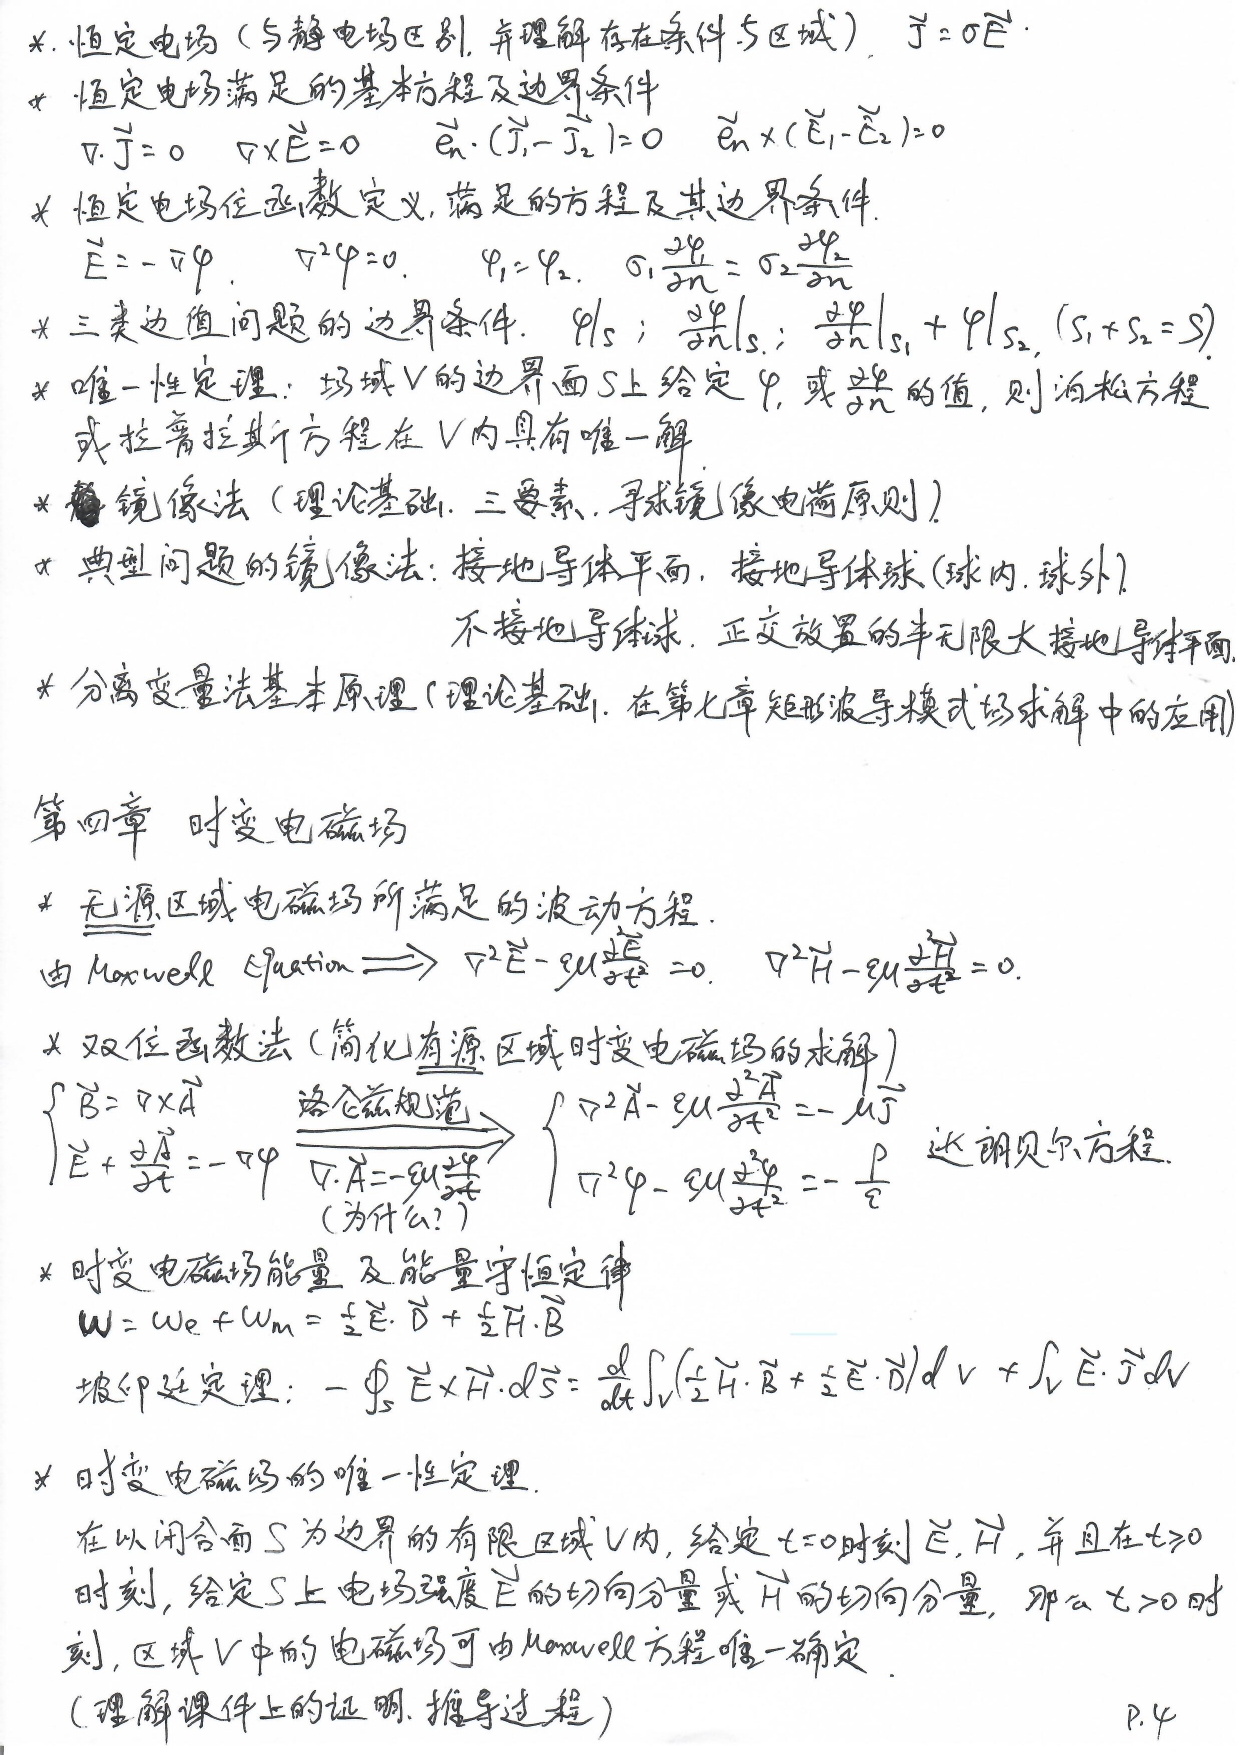 *. 恒定电场 (与静电场区别, 并理解存在条件与区域). J⃗ = σE⃗.
* 恒定电场满足的基本方程及边界条件
∇·J⃗ = 0 ∇×E⃗ = 0 e⃗n·(J⃗₁-J⃗₂)=0 e⃗n×(E⃗₁-E⃗₂)=0
* 恒定电场位函数定义, 满足的方程及其边界条件.
E⃗ = -∇φ. ∇²φ=0. φ₁=φ₂. σ₁ ∂φ₁/∂n = σ₂ ∂φ₂/∂n
* 三类边值问题的边界条件. φ|s ; ∂φ/∂n|s. ; ∂φ/∂n|s₁ + φ|s₂, (S₁+S₂=S).
* 唯一性定理: 场域V的边界面S上给定φ, 或∂φ/∂n的值, 则泊松方程
或拉普拉斯方程在V内具有唯一解.
* 镜像法 (理论基础. 三要素. 寻求镜像电荷原则).
* 典型问题的镜像法: 接地导体平面, 接地导体球(球内. 球外).
不接地导体球. 正交放置的半无限大接地导体平面.
* 分离变量法基本原理(理论基础. 在第七章矩形波导模式场求解中的应用)
第四章 时变电磁场
* 无源区域电磁场所满足的波动方程.
由 Maxwell Equation ⟹ ∇²E⃗ - εμ ∂²E⃗/∂t² = 0. ∇²H⃗ - εμ ∂²H⃗/∂t² = 0.
* 双位函数法(简化有源区域时变电磁场的求解)
{ B⃗ = ∇×A⃗ 洛仑兹规范 { ∇²A⃗ - εμ ∂²A⃗/∂t² = -μJ⃗
E⃗ + ∂A⃗/∂t = -∇φ ∇·A⃗ = -εμ ∂φ/∂t ∇²φ - εμ ∂²φ/∂t² = - ρ/ε 达朗贝尔方程.
(为什么?)
* 时变电磁场能量及能量守恒定律
W = We + Wm = ½E⃗·D⃗ + ½H⃗·B⃗
坡印廷定理: -∮s E⃗×H⃗·dS⃗ = d/dt ∫v(½H⃗·B⃗ + ½E⃗·D⃗)dV + ∫v E⃗·J⃗ dV
* 时变电磁场的唯一性定理.
在以闭合面S为边界的有限区域V内, 给定t=0时刻E⃗, H⃗, 并且在t≥0
时刻, 给定S上电场强度E⃗的切向分量或H⃗的切向分量, 那么t>0时
刻, 区域V中的电磁场可由Maxwell方程唯一确定.
(理解课件上的证明. 推导过程)
P.4